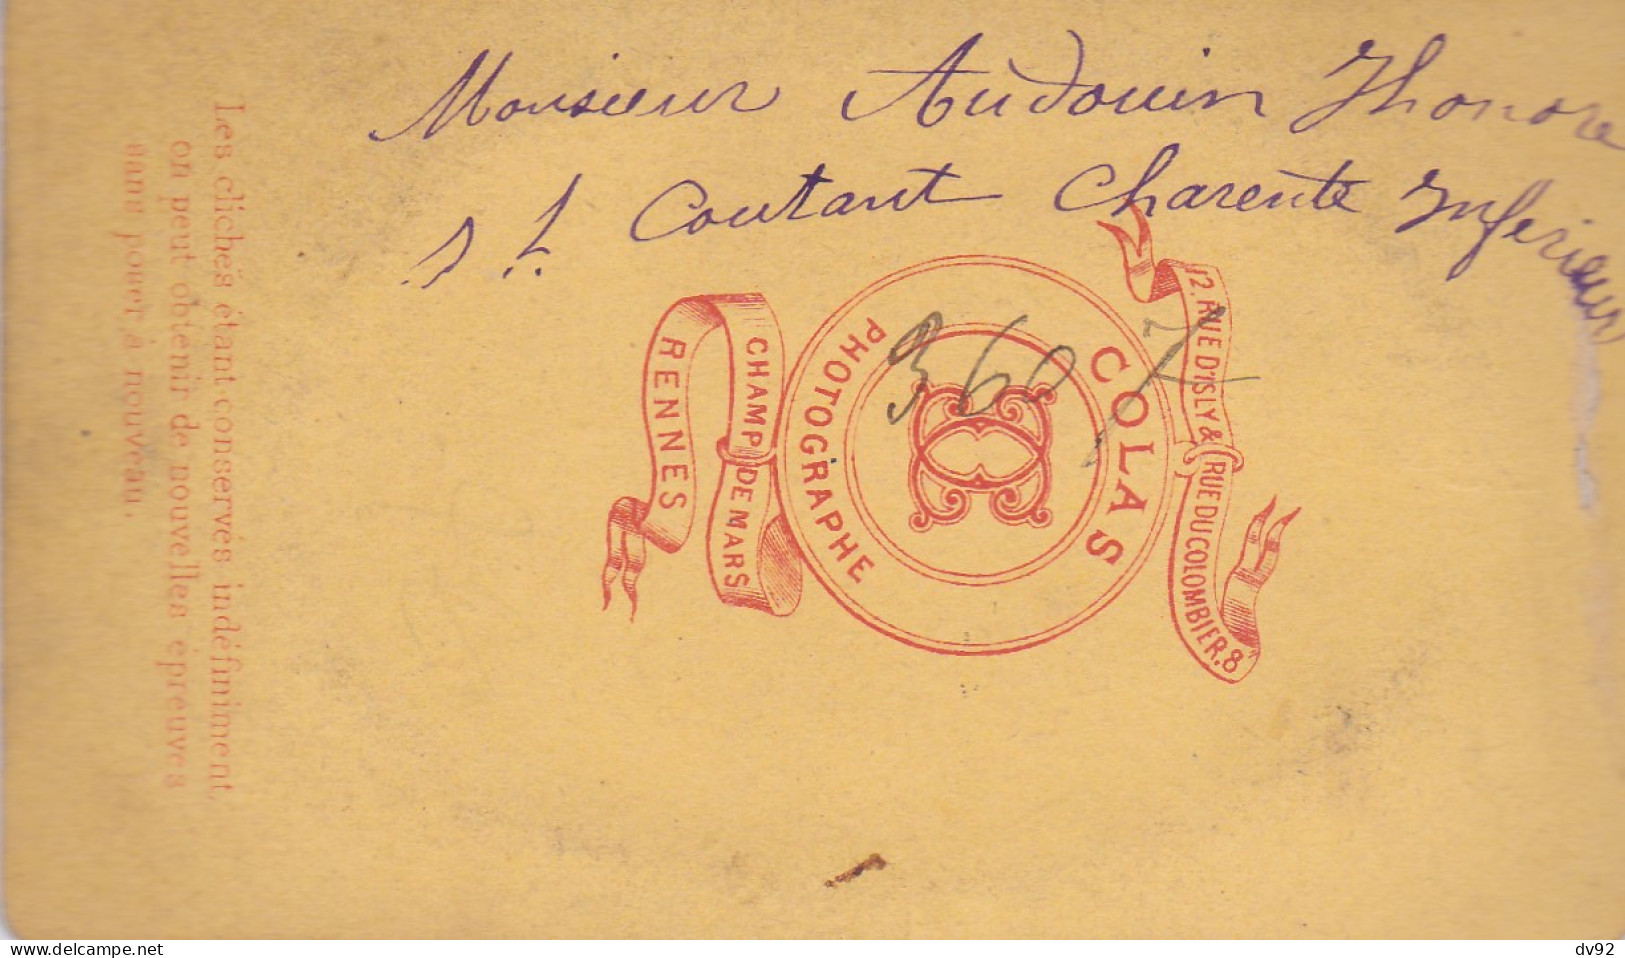 Monsieur Audouin Thonore
st Coutant Charente Inferieur
3607
COLAS
PHOTOGRAPHE
12. RUE D'ISLY & RUE DU COLOMBIER. 8
CHAMP DE MARS
RENNES
Les clichés étant conservés indéfiniment,
on peut obtenir de nouvelles épreuves
sans poser à nouveau.
delcampe.net
dv92